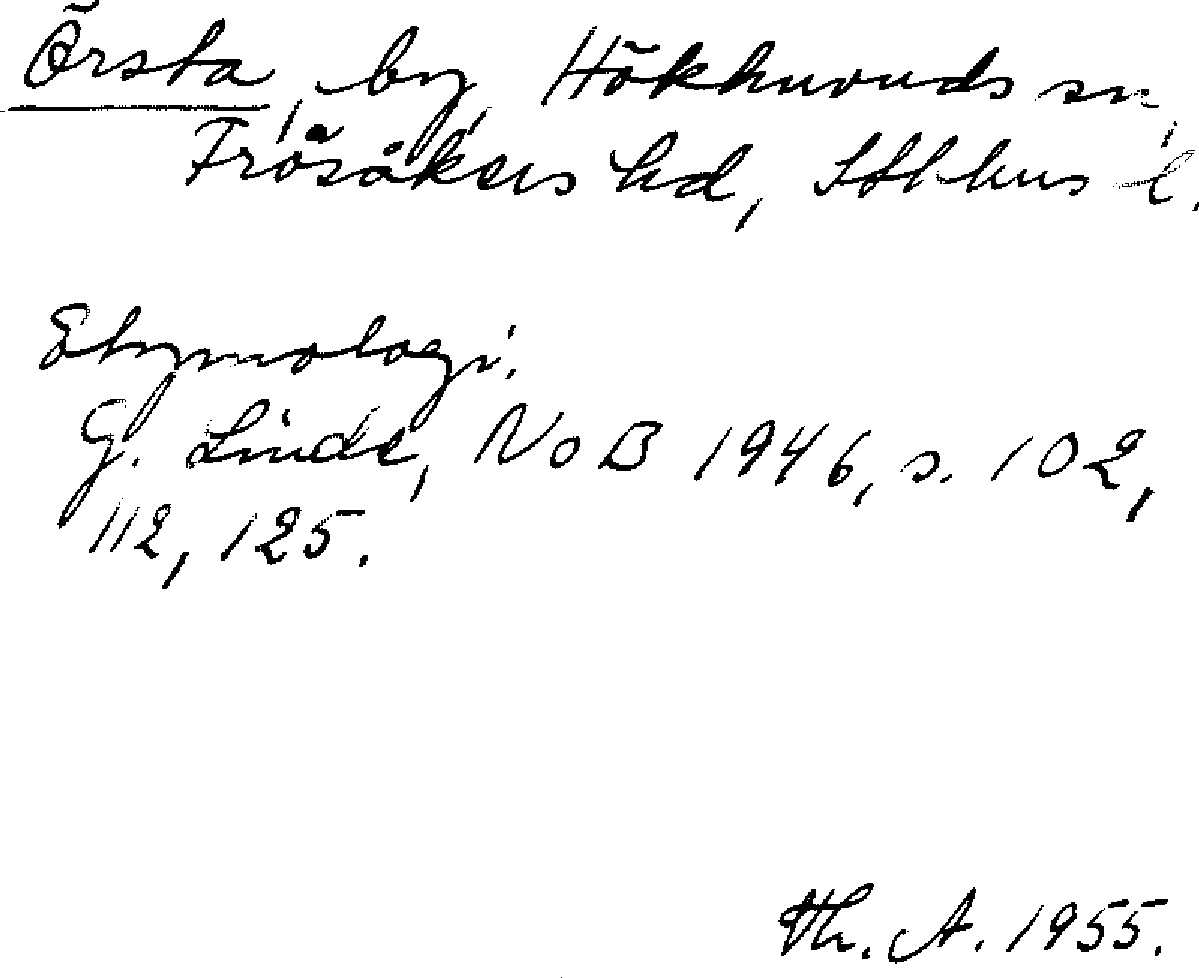 Örsta, by, Hökhuvuds sn,
Frösåkers hd, Sthlms l.
Etymologi.
G. Linde, NoB 1946, s. 102,
112, 125.
Th. A. 1955.